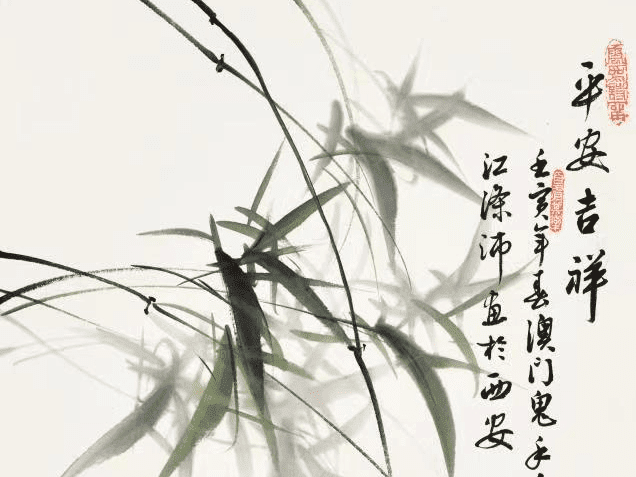 平安吉祥
壬寅年春澳门鬼手
江涤沛画於西安